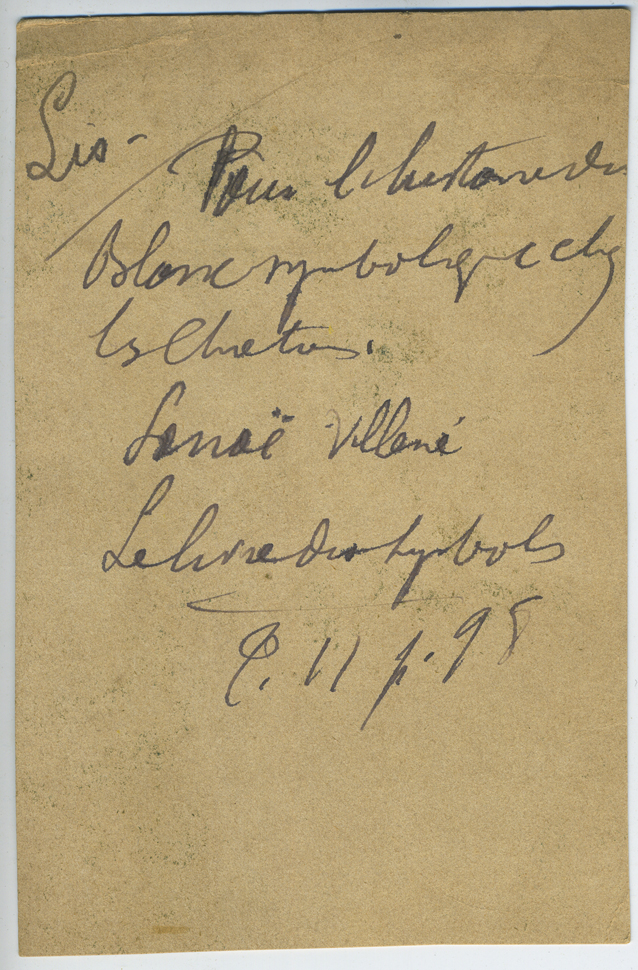 Lis -
Pour l'histoire du
Blanc symbolique chez
les Chrétiens.
Lanoë Villene
Le livre des Symboles
T. II p. 98